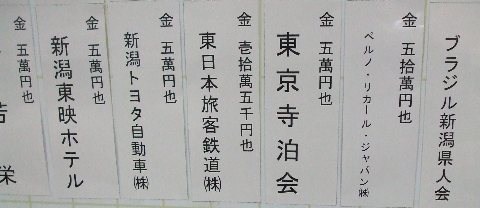 ブラジル新潟県人会
金 五拾萬円也
ペルノ・リカール・ジャパン㈱
金 五萬円也
東京寺泊会
金 壱拾萬五千円也
東日本旅客鉄道㈱
金 五萬円也
新潟トヨタ自動車㈱
金 五萬円也
新潟東映ホテル